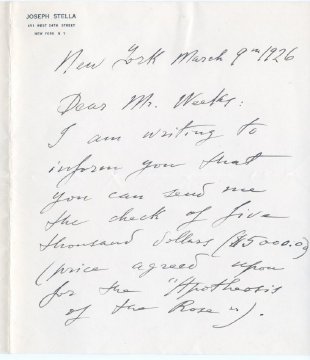 JOSEPH STELLA
WEST STREET
NEW YORK N Y
New York March 9th 1926
Dear Mr. Weeks:
I am writing to
inform you that
you can send me
the check of five
thousand dollars ($5000.00
(price agreed upon
for the "Apotheosis
of the Rose").